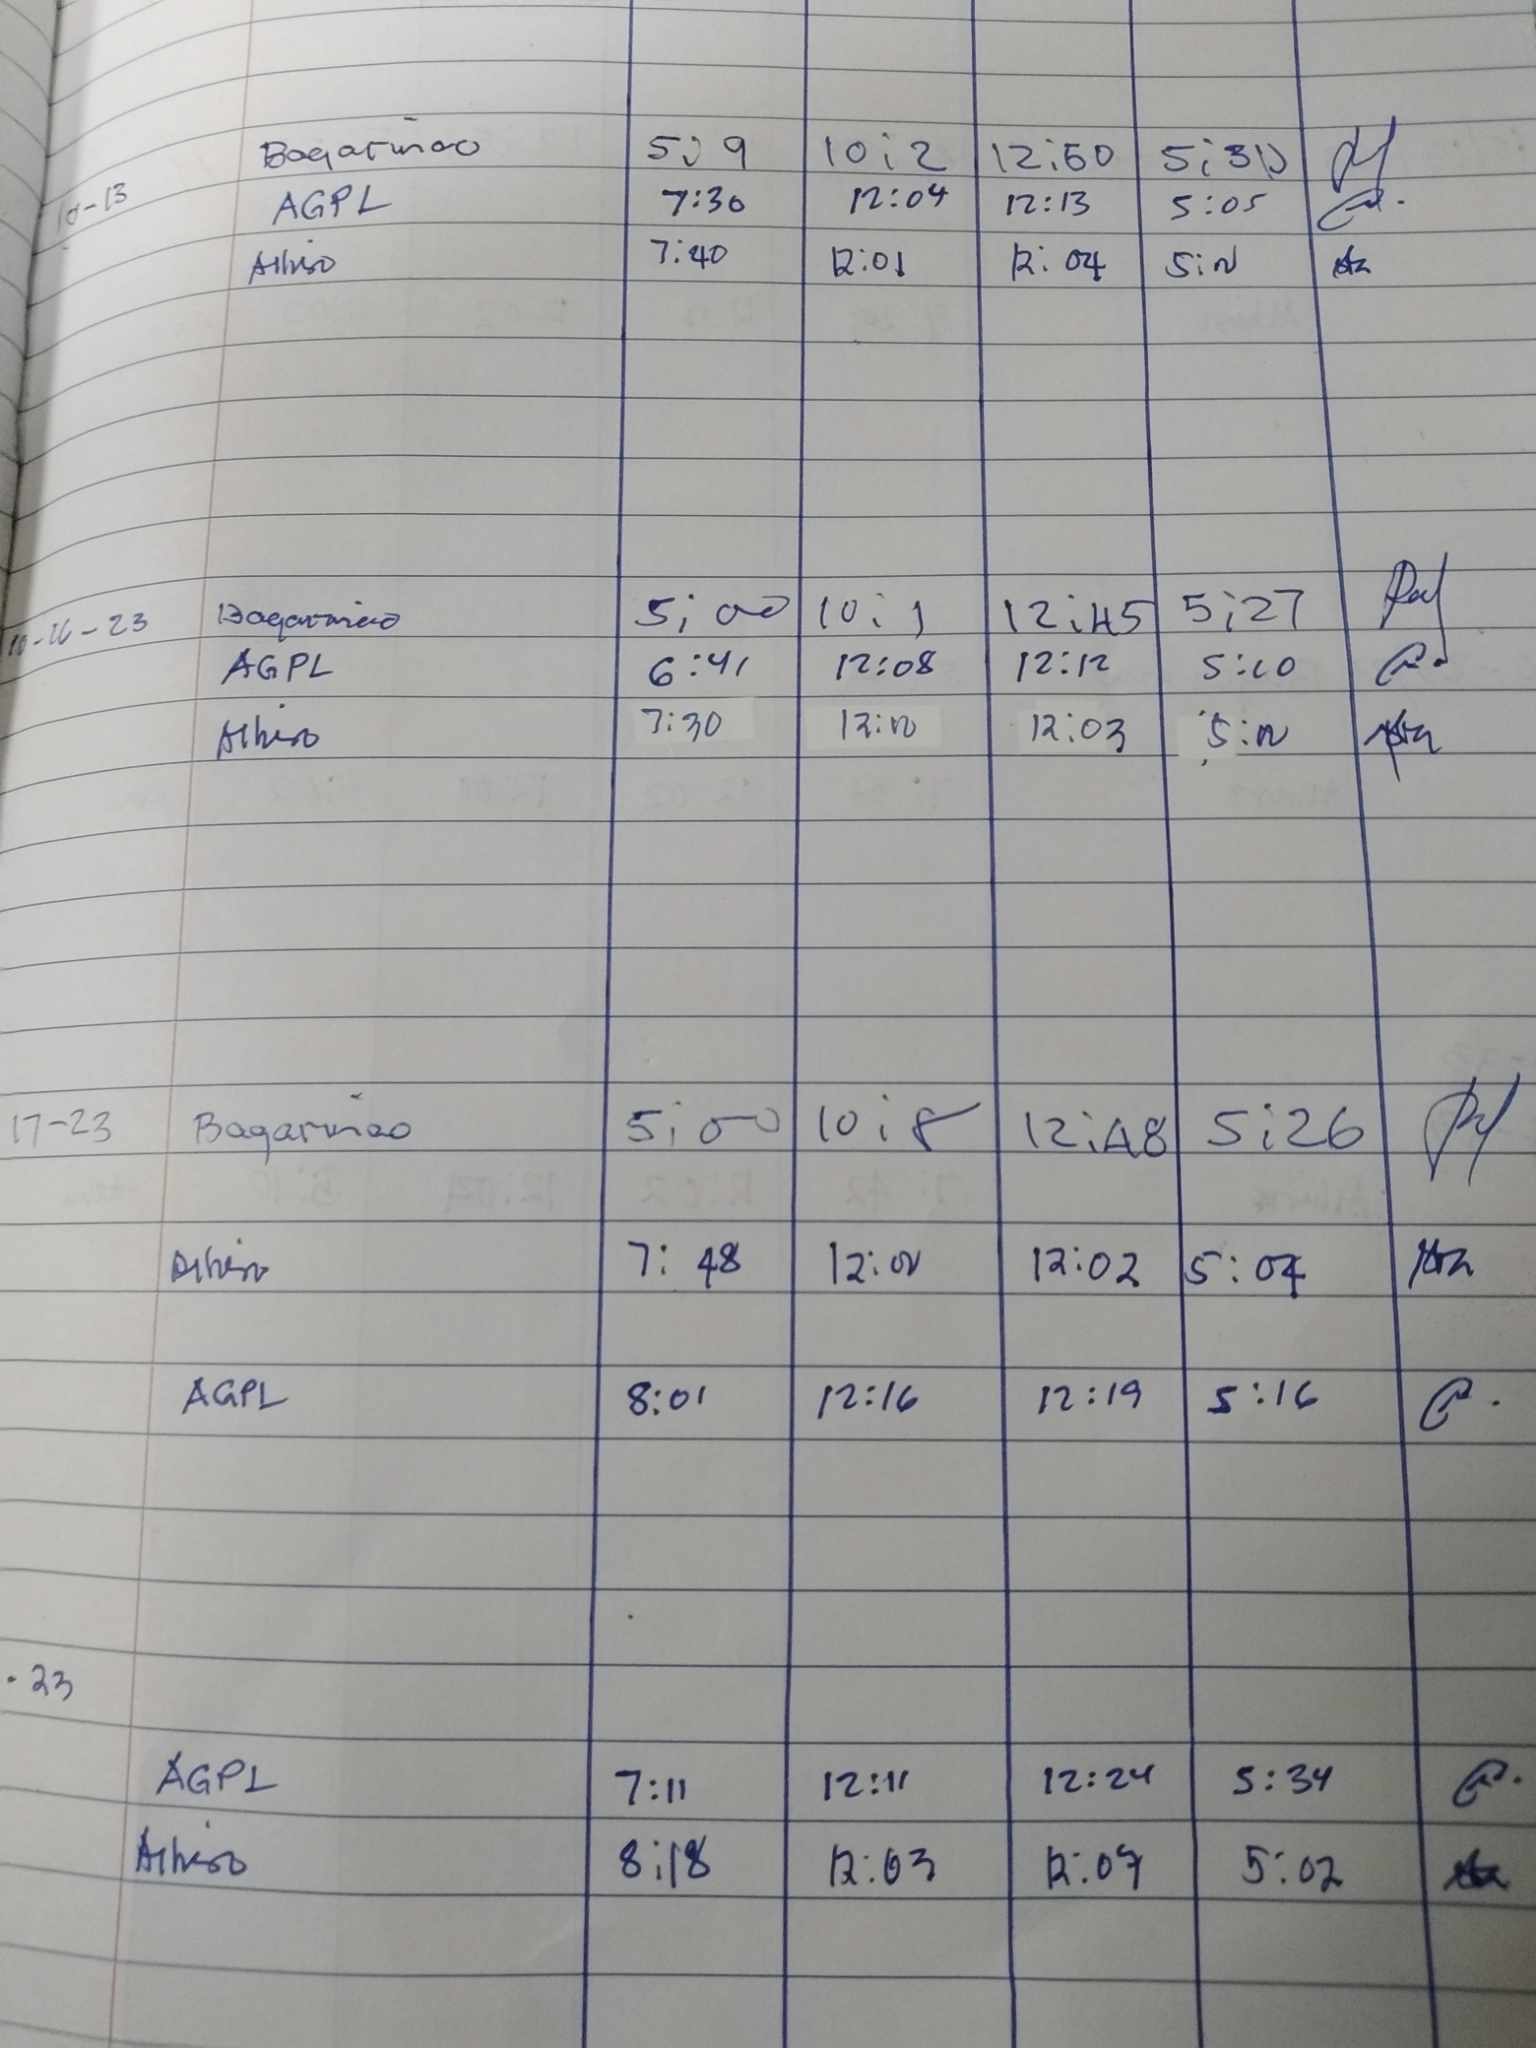 Bagarinao 5:9 10:2 12:50 5:30
10-13 AGPL 7:30 12:04 12:13 5:05
7:40 12:01 12:04 5:00
10-16-23 Bagarinao 5:00 10:1 12:45 5:27
AGPL 6:41 12:08 12:12 5:10
7:30 12:00 12:03 5:00
17-23 Bagarinao 5:00 10:8 12:48 5:26
7:48 12:00 12:02 5:04
AGPL 8:01 12:16 12:19 5:16
-23
AGPL 7:11 12:11 12:24 5:34
8:18 12:03 12:07 5:02